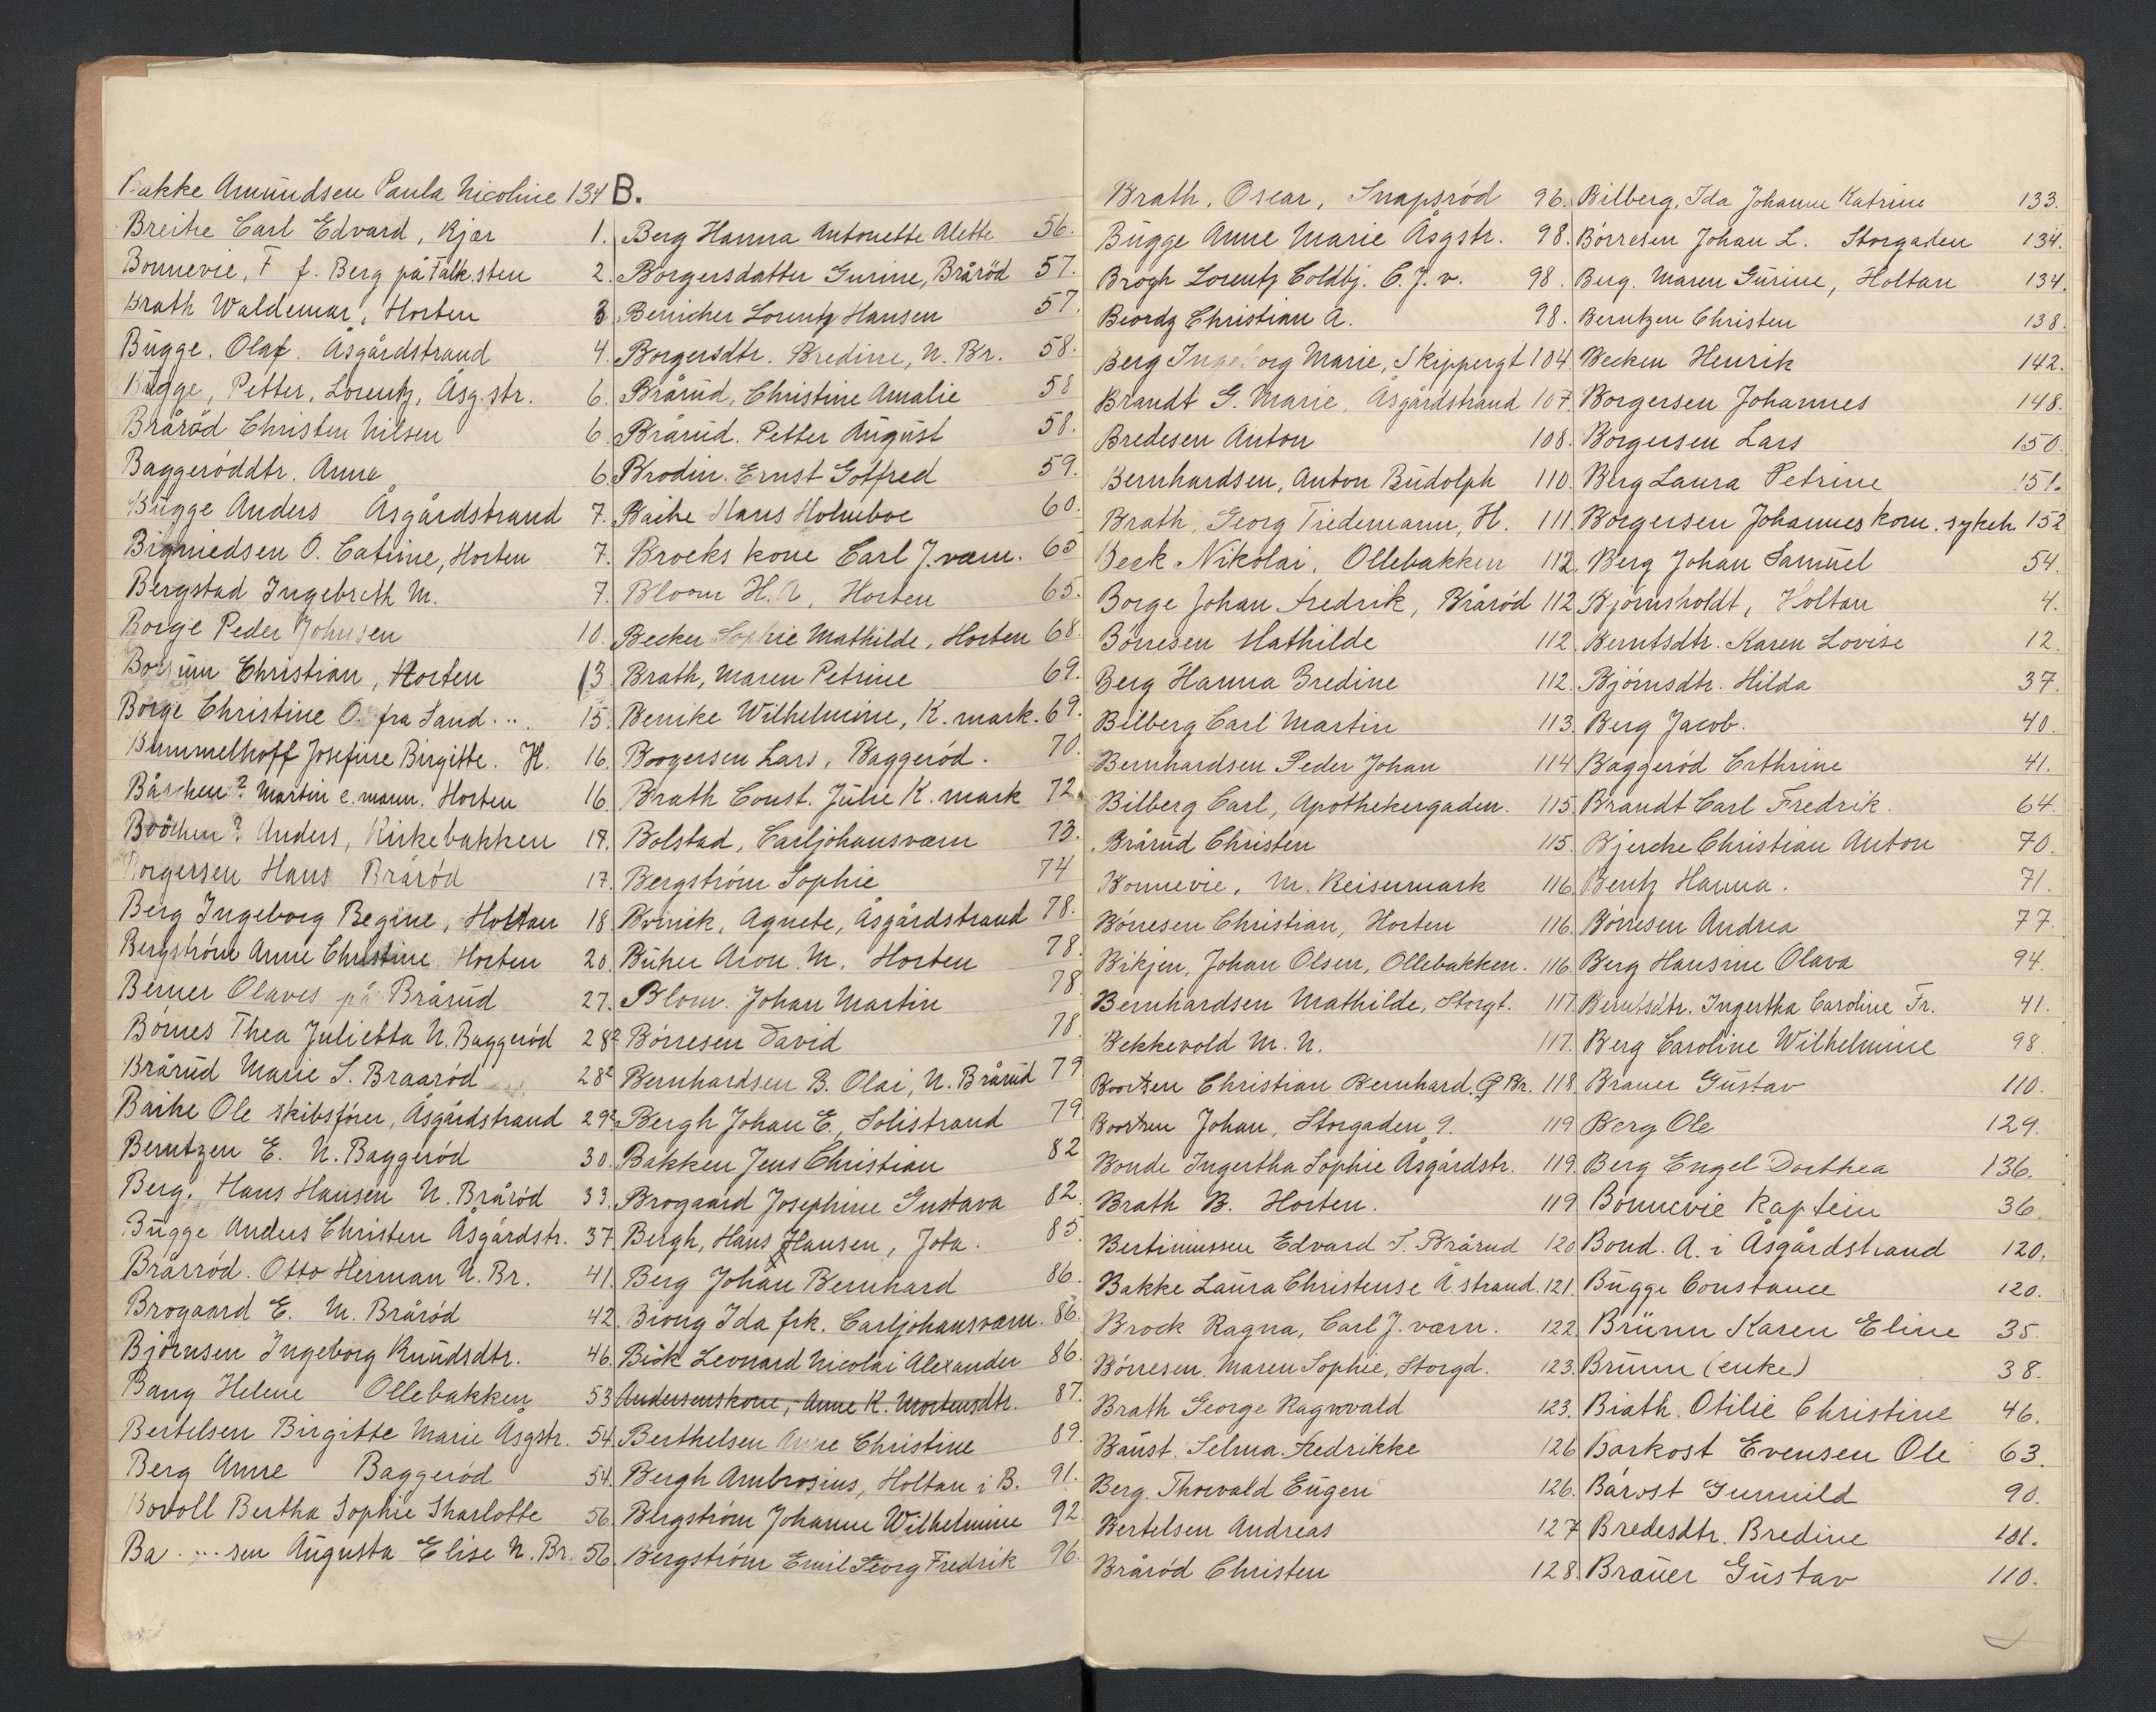 Bakke Amundsen Paula Nicoline 134
B.
Breihe Carl Edvard, Kjær 1.
Bonnevie, F f. Berg på Falk.sten 2.
Brath Waldemar, Horten 3
Bugge. Olaf. Åsgårdstrand 4.
Bugge, Petter, Lorentz, Åsg.str. 6.
Brårød Christen Nilsen 6.
Baggerøddtr. Anna 6.
Bugge Anders Åsgårdstrand 7.
O. Catrine, Horten 7.
Bergstad Ingebreth M. 7.
Borge Peder Johnsen 10.
Christian, Horten 13.
Borge Christine O. fra Sand.... 15.
Bummelhoff Josefine Birgitte. H. 16.
Båschen? Martin e.mann. Horten 16
Anders, Kirkebakken 17.
Borgersen Hans Brårød 17.
Berg Ingeborg Regine, Holtan 18
Bergstrøm Anne Christine Horten 20.
Berner Olaves på Brårud 27.
Børnes Thea Julietta N. Baggerød 28²
Brårud Marie S. Braarød 28²
Baihe Ole skibsfører, Åsgårdstrand 29²
Berntzen E. N. Baggerød 30.
Berg. Hans Hansen N. Brårød 33.
Bugge Anders Christen Åsgårdstr. 37.
Brårrød. Otto Herman N. Br. 41.
Brogaard E. M. Brårød 42.
Bjørnsen Ingeborg Knudsdtr. 46.
Bang Helene Ollebakken 53
Bertelsen Birgitte Marie Åsgstr. 54.
Berg Anne Baggerød 54.
Bovoll Bertha Sophie Sharlotte 56.
Ba....sen Augusta Elise N. Br. 56.
Berg Hanna Antonette Alette 56.
Borgersdatter Gurine, Brårød 57.
Benicher Lorentz Hansen 57.
Borgersdtr. Bredine, N. Br. 58.
Brårud, Christine Amalie 58
Brårud. Petter August 58.
Brodin. Ernst Gotfred 59.
Baihe Hans Holmboe 60.
Brocks kone Carl J.værn. 65
Bloom H. A, Horten 65.
Becker Sophie Mathilde, Horten 68.
Brath, Maren Petrine 69.
Benike Wilhelmine, K. mark. 69.
Boogersen Lars, Baggerød. 70.
Brath Const. Julie K. mark 72.
Bolstad, Carljohansværn 73.
Bergstrøm Sophie 74
Agnete, Åsgårdstrand 78.
Büher Aron M. Horten 78.
Blom. Johan Martin 78
Børresen David 78.
Bernhardsen B. Olai, N. Brårud 79.
Bergh Johan E., Solistrand 79.
Bakken Jens Christian 82
Brogaard Josephine Gustava 82.
Bergh, Hans Hansen, Jota. 85.
Berg Johan Bernhard 86.
Brong Ida frk. Carljohansværn. 86.
Bisk Leonard Nicolai Alexander 86.
Andersens kone, Anne K. Mortensdtr. 87.
Berthelsen Anne Christine 89.
Bergh Ambrosius, Holtan i B. 91.
Bergstrøm Johanne Wilhelmine 92.
Bergstrøm Emil Georg Fredrik 96.
Brath, Oscar, Snapsrød 96.
Bugge Anne Marie Åsgstr. 98.
Brogh Lorentz Coldbj. C. J. v. 98.
Beordz Christian A. 98.
Berg Ingeborg Marie, Skippergt 104
Brandt G. Marie, Åsgårdstrand 107.
Bredesen Anton 108.
Bernhardsen, Anton Budolph 110.
Brath, Georg Tiedemann, H. 111.
Beck Nikolai, Ollebakken 112.
Borge Johan Fredrik, Brårød 112.
Børresen Mathilde 112.
Berg Hanna Bredine 112.
Bilberg Carl Martin 113.
Bernhardsen Peder Johan 114.
Bilberg Carl, Apothekergaden. 115.
Brårud Christen 115.
Bonnevie, M. Keisermark 116.
Børresen Christian, Horten 116.
Bikjen, Johan Olsen, Ollebakken. 116.
Bernhardsen Mathilde, Storgt. 117.
Bekkevold M. N. 117.
Boortzen Christian Bernhard. G Br. 118.
Boortzen Johan, Storgaden 9. 119
Bonde Ingertha Sophie Åsgårdstr. 119.
Brath B. Horten. 119
Bertiniussen Edvard S. Brårud 120
Bakke Laura Christense Å.strand. 121.
Brock Ragna, Carl J. værn. 122.
Børresen. Maren Sophie, Storgd. 123.
Brath George Ragnvald 123.
Baust. Selma Fredrikke 126
Berg. Thorvald Eugen 126.
Bertelsen Andreas 127
Brårød Christen 128.
Bilberg, Ida Johanne Katrine 133.
Børresen Johan L. Storgaden 134.
Berg. Maren Gurine, Holtan 134.
Berntzen Christen 138.
Becken Henrik 142.
Borgersen Johannes 148.
Borgersen Lars 150.
Berg Laura Petrine 151.
Borgersen Johannes kom. sykeh. 152
Berg Johan Samuel 54.
Bjørnsholdt, Holtan 4.
Berntsdtr. Karen Lovise 12.
Bjørnsdtr. Hilda 37.
Berg Jacob. 40.
Baggerød Cathrine 41.
Brandt Carl Fredrik. 64.
Bjerche Christian Anton 70.
Bentz Hanna. 71.
Børresen Andrea 77.
Berg Hansine Olava 94.
Berntsdtr. Ingertha Caroline Fr. 41.
Berg Caroline Wilhelmine 98
Brauer Gustav 110.
Berg Ole 129.
Berg Engel Dorthea 136.
Bonnevie Kaptein 36.
Bond. A. i Åsgårdstrand 120.
Bugge Constance 120.
Brünn Karen Eline 35.
Brunn (enke) 38.
Brath. Otilie Christine 46.
Barkost Evensen Ole 63.
Bårost Gunnild 90.
Bredesdtr. Bredine 101.
Brauer Gustav 110.